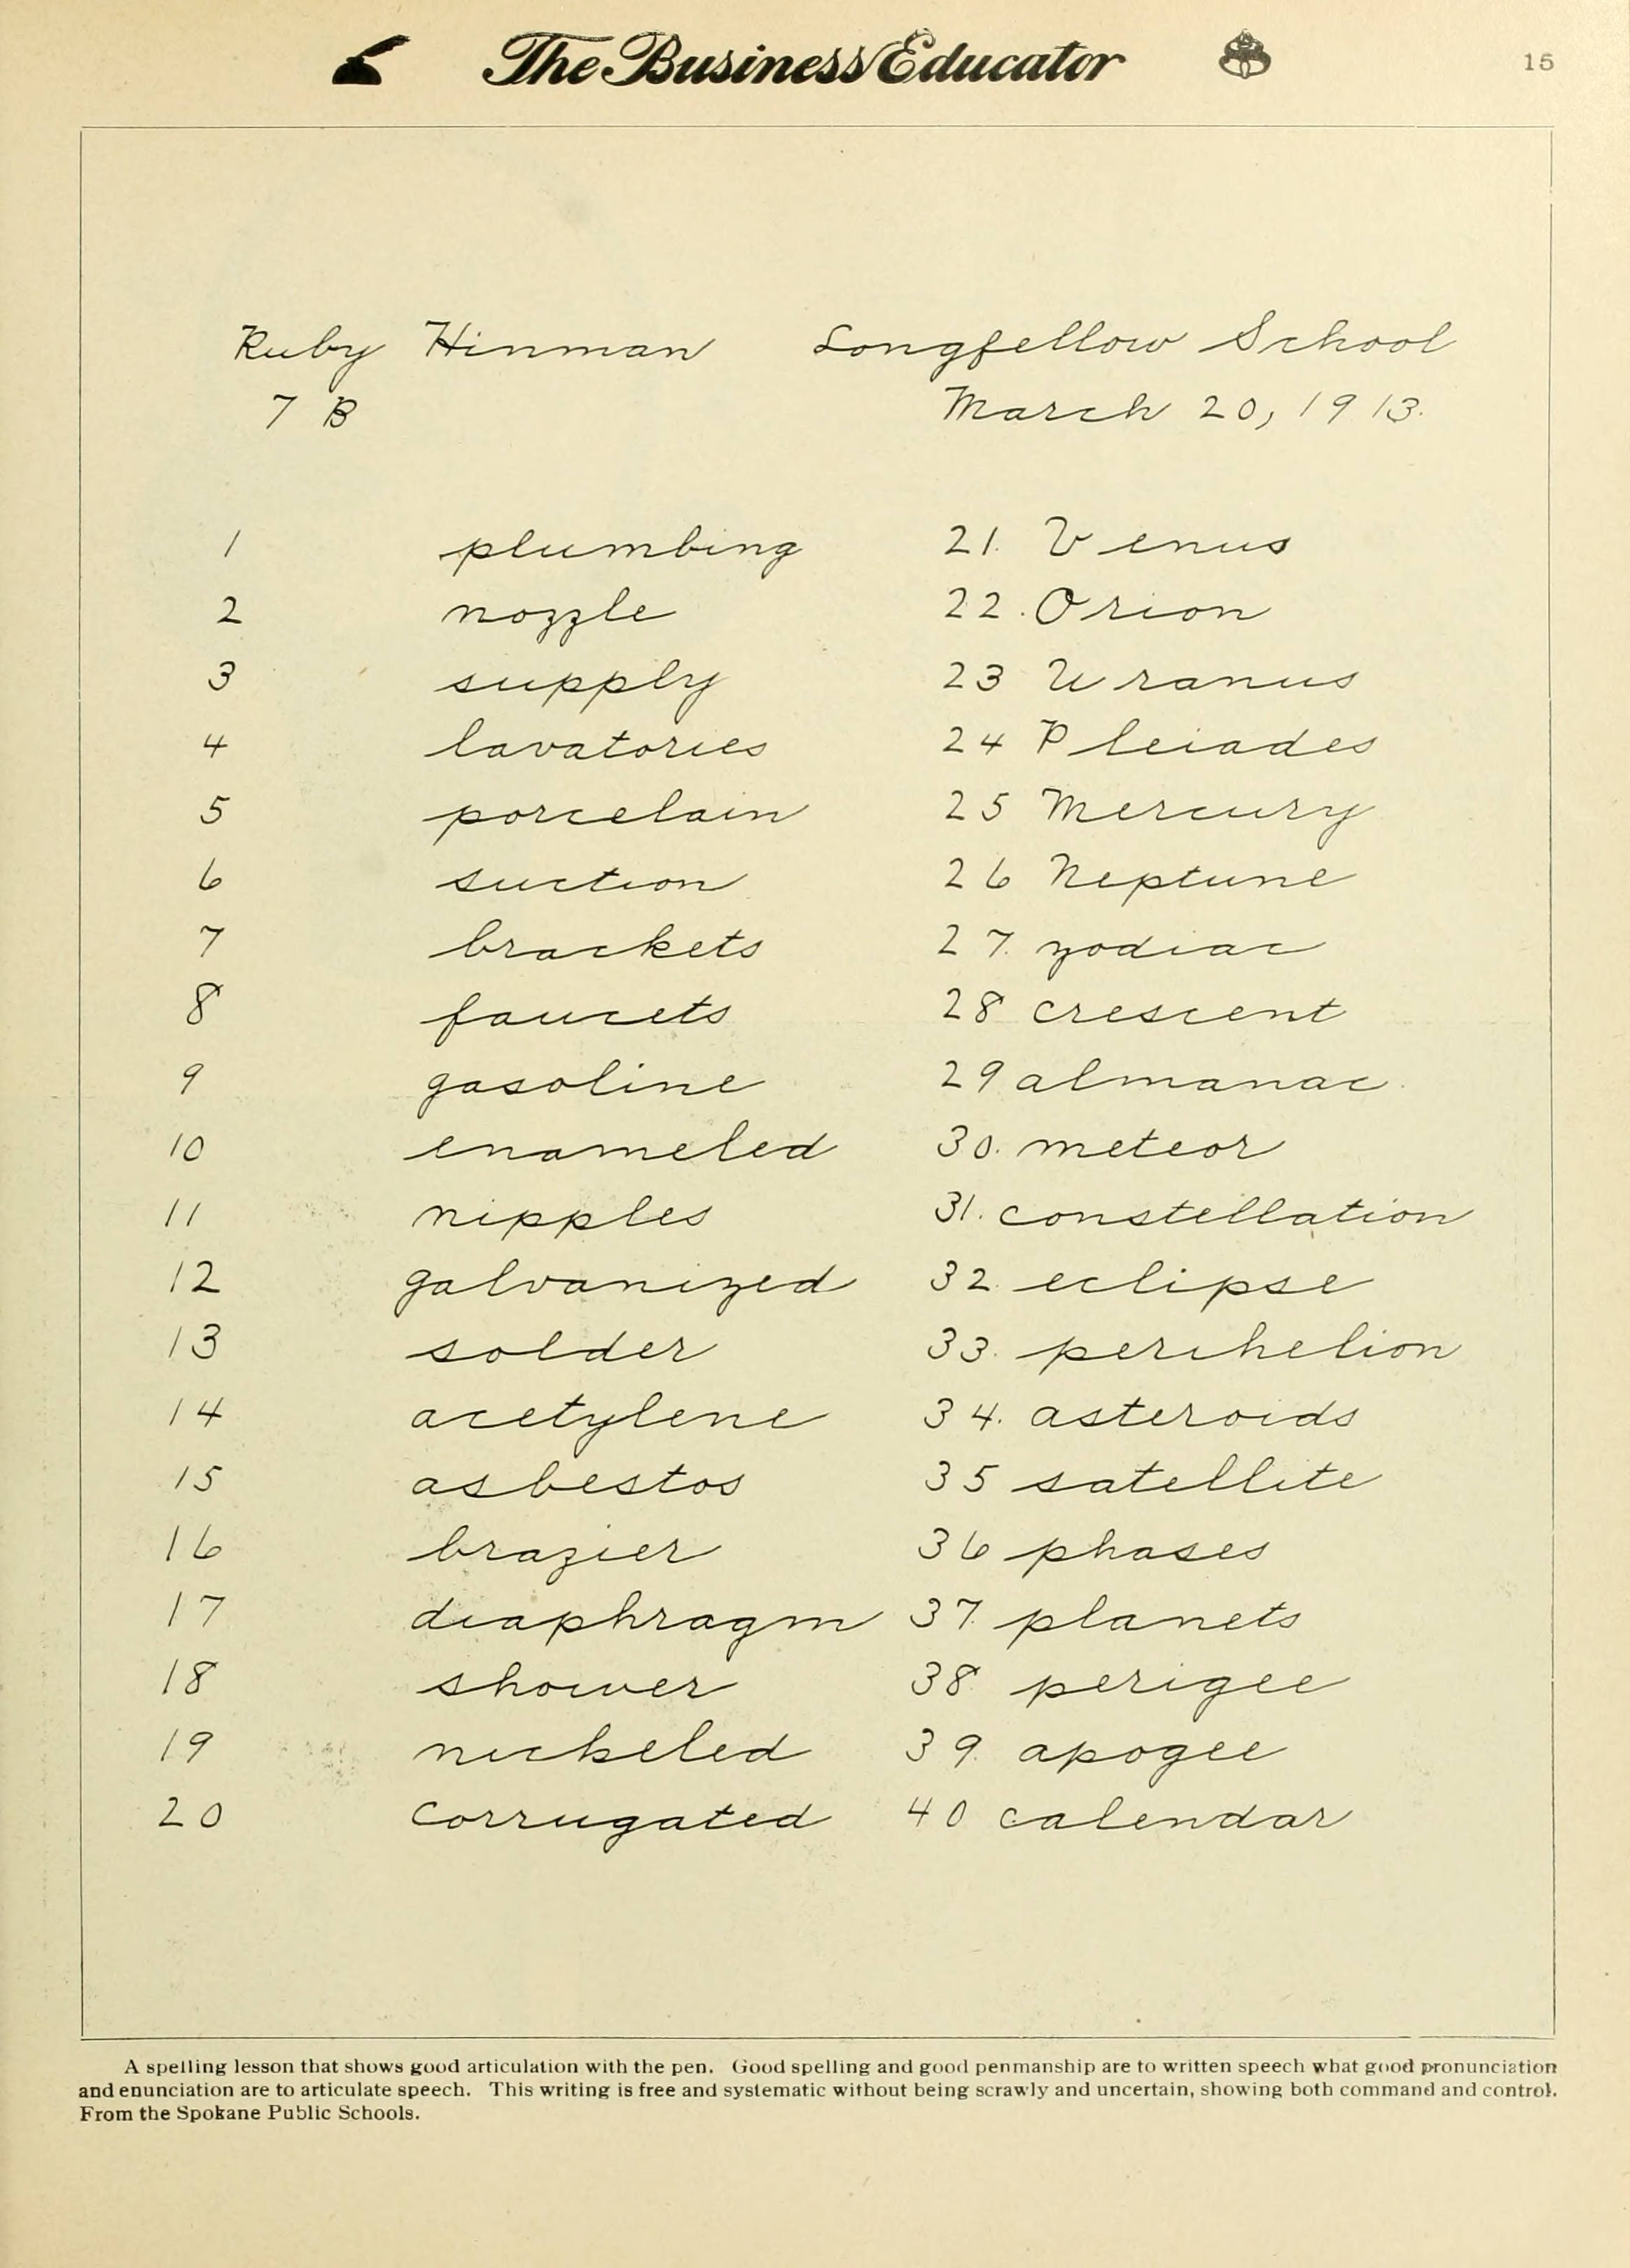 The Business Educator 15
Ruby Hinman Longfellow School
7 B March 20, 1913.
1 plumbing 21. Venus
2 nozzle 22. Orion
3 supply 23 Uranus
4 lavatories 24 Pleiades
5 porcelain 25 Mercury
6 suction 26 Neptune
7 brackets 27. zodiac
8 faucets 28 crescent
9 gasoline 29 almanac.
10 enameled 30. meteor
11 nipples 31. constellation
12 galvanized 32. eclipse
13 solder 33. perihelion
14 acetylene 34. asteroids
15 asbestos 35 satellite
16 brazier 36 phases
17 diaphragm 37. planets
18 shower 38. perigee
19 nickeled 39. apogee
20 corrugated 40 calendar
A spelling lesson that shows good articulation with the pen. Good spelling and good penmanship are to written speech what good pronunciation
and enunciation are to articulate speech. This writing is free and systematic without being scrawly and uncertain, showing both command and control.
From the Spokane Public Schools.